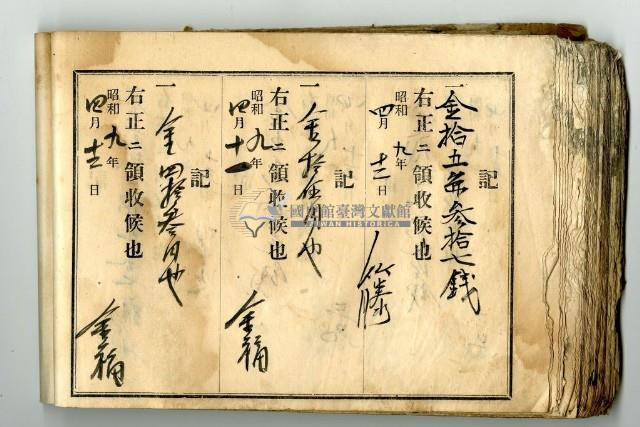 記
一金拾五円参拾七銭
右正ニ領收候也
昭和九年
四月十二日
記
一金拾伍円也
右正ニ領收候也
昭和九年
四月十一日
金福
記
一金四拾参円也
右正ニ領收候也
昭和九年
四月十二日
金福
國史館臺灣文獻館
TAIWAN HISTORICA